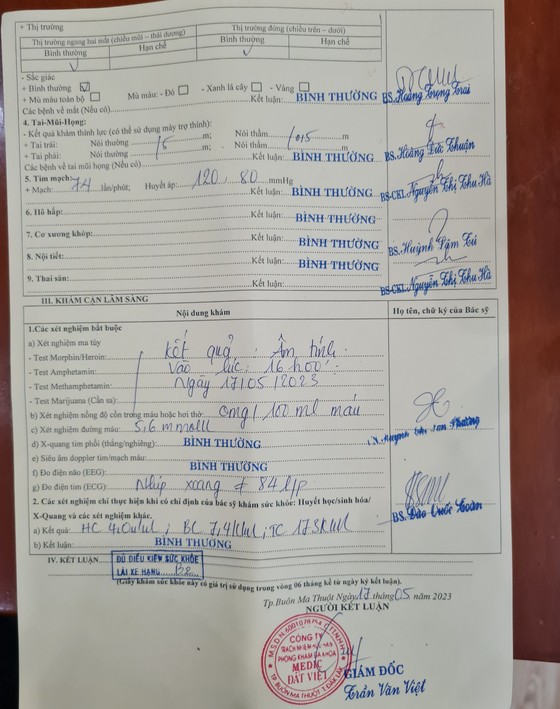 + Thị trường
Thị trường ngang hai mắt (chiều mũi – thái dương) Thị trường đứng (chiều trên – dưới)
Bình thường Hạn chế Bình thường Hạn chế
- Sắc giác
+ Bình thường
+ Mù màu toàn bộ Mù màu: - Đỏ - Xanh lá cây - Vàng
Các bệnh về mắt (Nếu có) Kết luận: BÌNH THƯỜNG BS. Hoàng Trọng Trai
4. Tai-Mũi-Họng:
- Kết quả khám thính lực (có thể sử dụng máy trợ thính):
+ Tai trái: Nói thường 5 m; Nói thầm 0,5 m
+ Tai phải: Nói thường m; Nói thầm m
Các bệnh về tai mũi họng (Nếu có) Kết luận: BÌNH THƯỜNG BS. Hoàng Đức Thuận
5. Tim mạch:
+ Mạch: 74 lần/phút; Huyết áp: 120 / 80 mmHg
Kết luận: BÌNH THƯỜNG BS-CKI. Nguyễn Thị Thu Hà
6. Hô hấp:
Kết luận: BÌNH THƯỜNG
7. Cơ xương khớp:
Kết luận: BÌNH THƯỜNG BS. Huỳnh Tú
8. Nội tiết:
Kết luận: BÌNH THƯỜNG
9. Thai sản:
Kết luận: BS-CKI. Nguyễn Thị Thu Hà
III. KHÁM CẬN LÂM SÀNG
Nội dung khám Họ tên, chữ ký của Bác sỹ
1.Các xét nghiệm bắt buộc
a) Xét nghiệm ma túy
- Test Morphin/Heroin: Kết quả: Âm tính
- Test Amphetamin: Vào lúc: 16h00'
- Test Methamphetamin: Ngày 17/05/2023
- Test Marijuana (Cần sa):
b) Xét nghiệm nồng độ cồn trong máu hoặc hơi thở: 0mg/100ml máu
c) Xét nghiệm đường máu: 5,6 mmol/l
d) X-quang tim phổi (thẳng/nghiêng) BÌNH THƯỜNG
e) Siêu âm doppler tim/mạch máu:
f) Đo điện não (EEG) BÌNH THƯỜNG
g) Đo điện tim (ECG) Nhịp xoang # 84 l/p
2. Các xét nghiệm chỉ thực hiện khi có chỉ định của bác sỹ khám sức khỏe: Huyết học/sinh hóa/
X-Quang và các xét nghiệm khác.
BS. Đào Quốc Toàn
a) Kết quả: HC BC TC
b) Kết luận: BÌNH THƯỜNG
IV. KẾT LUẬN ĐỦ ĐIỀU KIỆN SỨC KHỎE
LÁI XE HẠNG B2
(Giấy khám sức khỏe này có giá trị sử dụng trong vòng 06 tháng kể từ ngày ký kết luận).
Tp.Buôn Ma Thuột Ngày 17 tháng 05 năm 2023
NGƯỜI KẾT LUẬN
CÔNG TY
TRÁCH NHIỆM HỮU HẠN
PHÒNG KHÁM ĐA KHOA
MEDIC
ĐẤT VIỆT
TP. BUÔN MA THUỘT T. ĐẮK LẮK
GIÁM ĐỐC
Trần Văn Việt